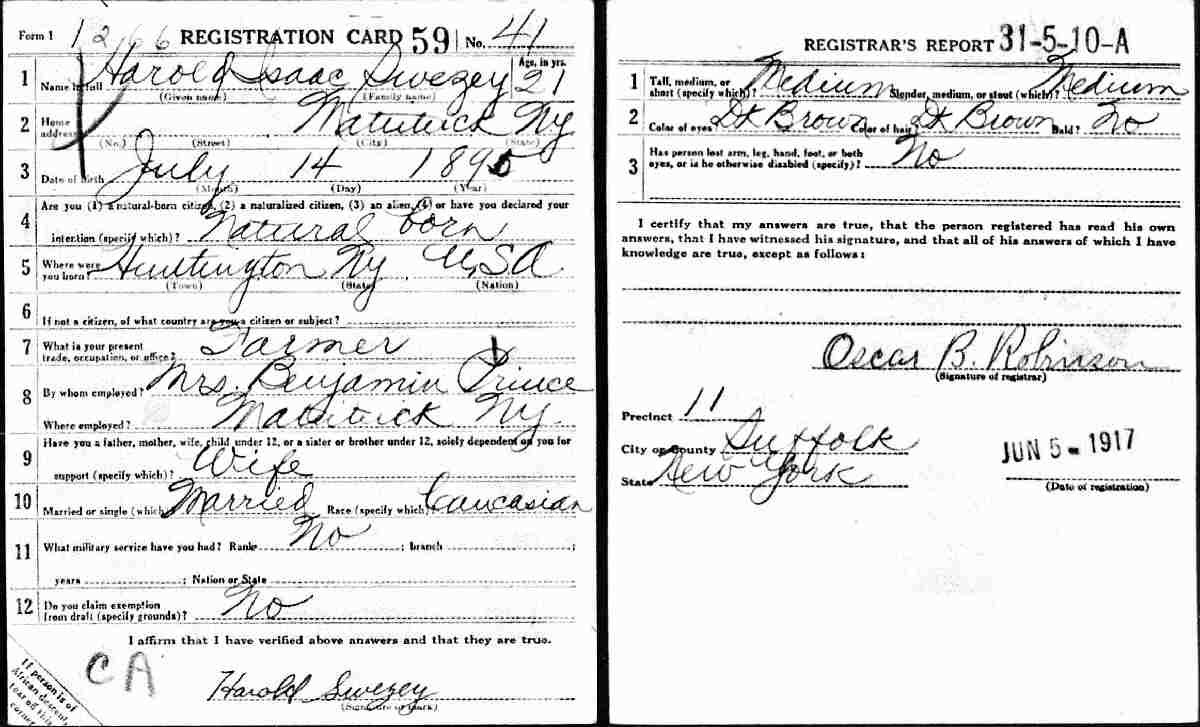 Form 1 1266 REGISTRATION CARD 59 No. 41
1 Name in full Harold Isaac Swezey Age, in yrs. 21
(Given name) (Family name)
2 Home address Mattituck Ny
(No.) (Street) (City) (State)
3 Date of birth July 14 1895
(Month) (Day) (Year)
4 Are you (1) a natural-born citizen, (2) a naturalized citizen, (3) an alien, (4) or have you declared your
intention (specify which)? Natural born
5 Where were you born? Huntington Ny, USA
(Town) (State) (Nation)
6 If not a citizen, of what country are you a citizen or subject?
7 What is your present trade, occupation, or office? Farmer
8 By whom employed? Mrs. Benjamin Prince
Where employed? Mattituck Ny
9 Have you a father, mother, wife, child under 12, or a sister or brother under 12, solely dependent on you for
support (specify which)? Wife
10 Married or single (which) Married Race (specify which) Caucasian
11 What military service have you had? Rank No ; branch ;
years ; Nation or State
12 Do you claim exemption from draft (specify grounds)? No
I affirm that I have verified above answers and that they are true.
CA
Harold Swezey
(Signature or mark)
If person is of
African descent,
tear off this
corner
REGISTRAR'S REPORT 31-5-10-A
1 Tall, medium, or short (specify which)? Medium Slender, medium, or stout (which)? Medium
2 Color of eyes Dk Brown Color of hair? Dk Brown Bald? No
3 Has person lost arm, leg, hand, foot, or both eyes, or is he otherwise disabled (specify)? No
I certify that my answers are true, that the person registered has read his own
answers, that I have witnessed his signature, and that all of his answers of which I have
knowledge are true, except as follows:
Oscar B. Robinson
(Signature of registrar)
Precinct 11
City or County Suffolk
State New York
JUN 5 - 1917
(Date of registration)